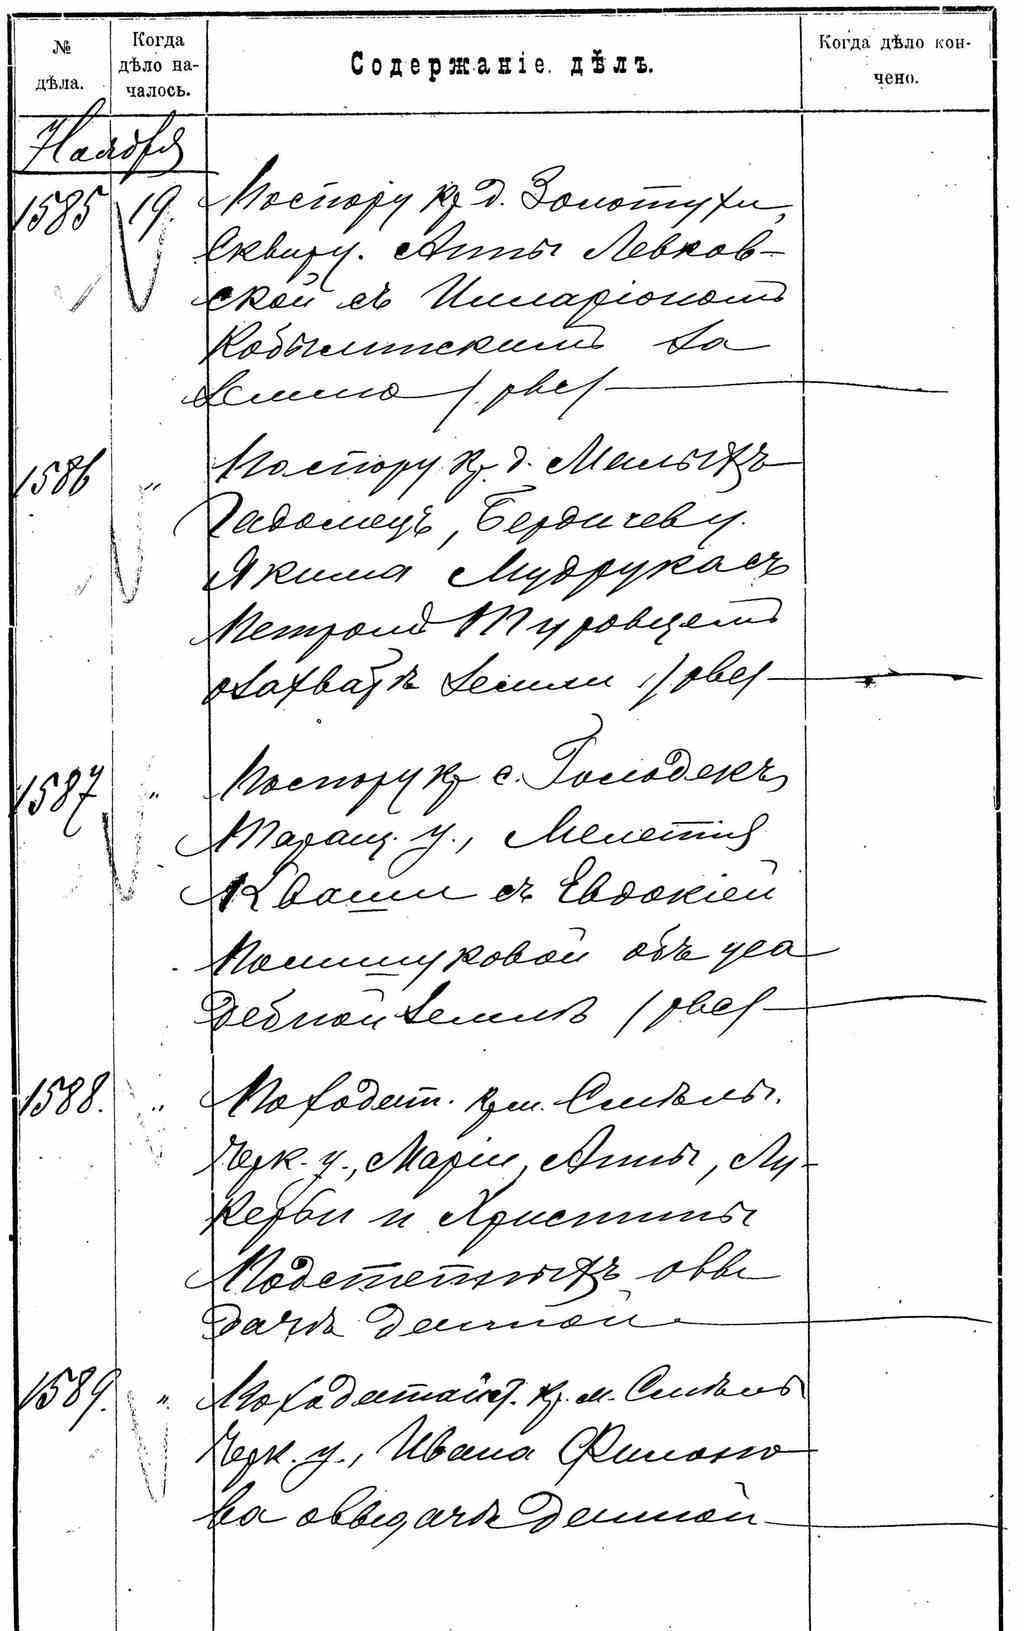 № дѣла.
Когда дѣло на-чалось.
Содержаніе дѣлъ.
Когда дѣло кон-чено.
Ноября
1585 19. По спору кр. д. Золотухи,
Сквир. у. Анны Левков-
ской съ Илларіономъ
Кобылинскимъ за
землю /рев/
1586 „ По спору кр. д. Малыхъ
Гадомецъ, Бердичев. у.
Якима Мудрука съ
Петромъ Туровцемъ
о захватѣ земли /рев/
1587 „ По спору кр. с. Голодекъ,
Таращ. у., Мелетія
Кваши съ Евдокіей
Полищуковой объ уса
дебной землѣ /рев/
1588. „ По ходат. кр. м. Смѣлы.
Черк. у., Маріи, Анны, Лу-
керьи и Христины
Подстепныхъ о вы
дачѣ данной
1589. „ По ходатайст. кр. м. Смѣлы
Черк. у., Ивана Филоно
ва о выдачѣ данной